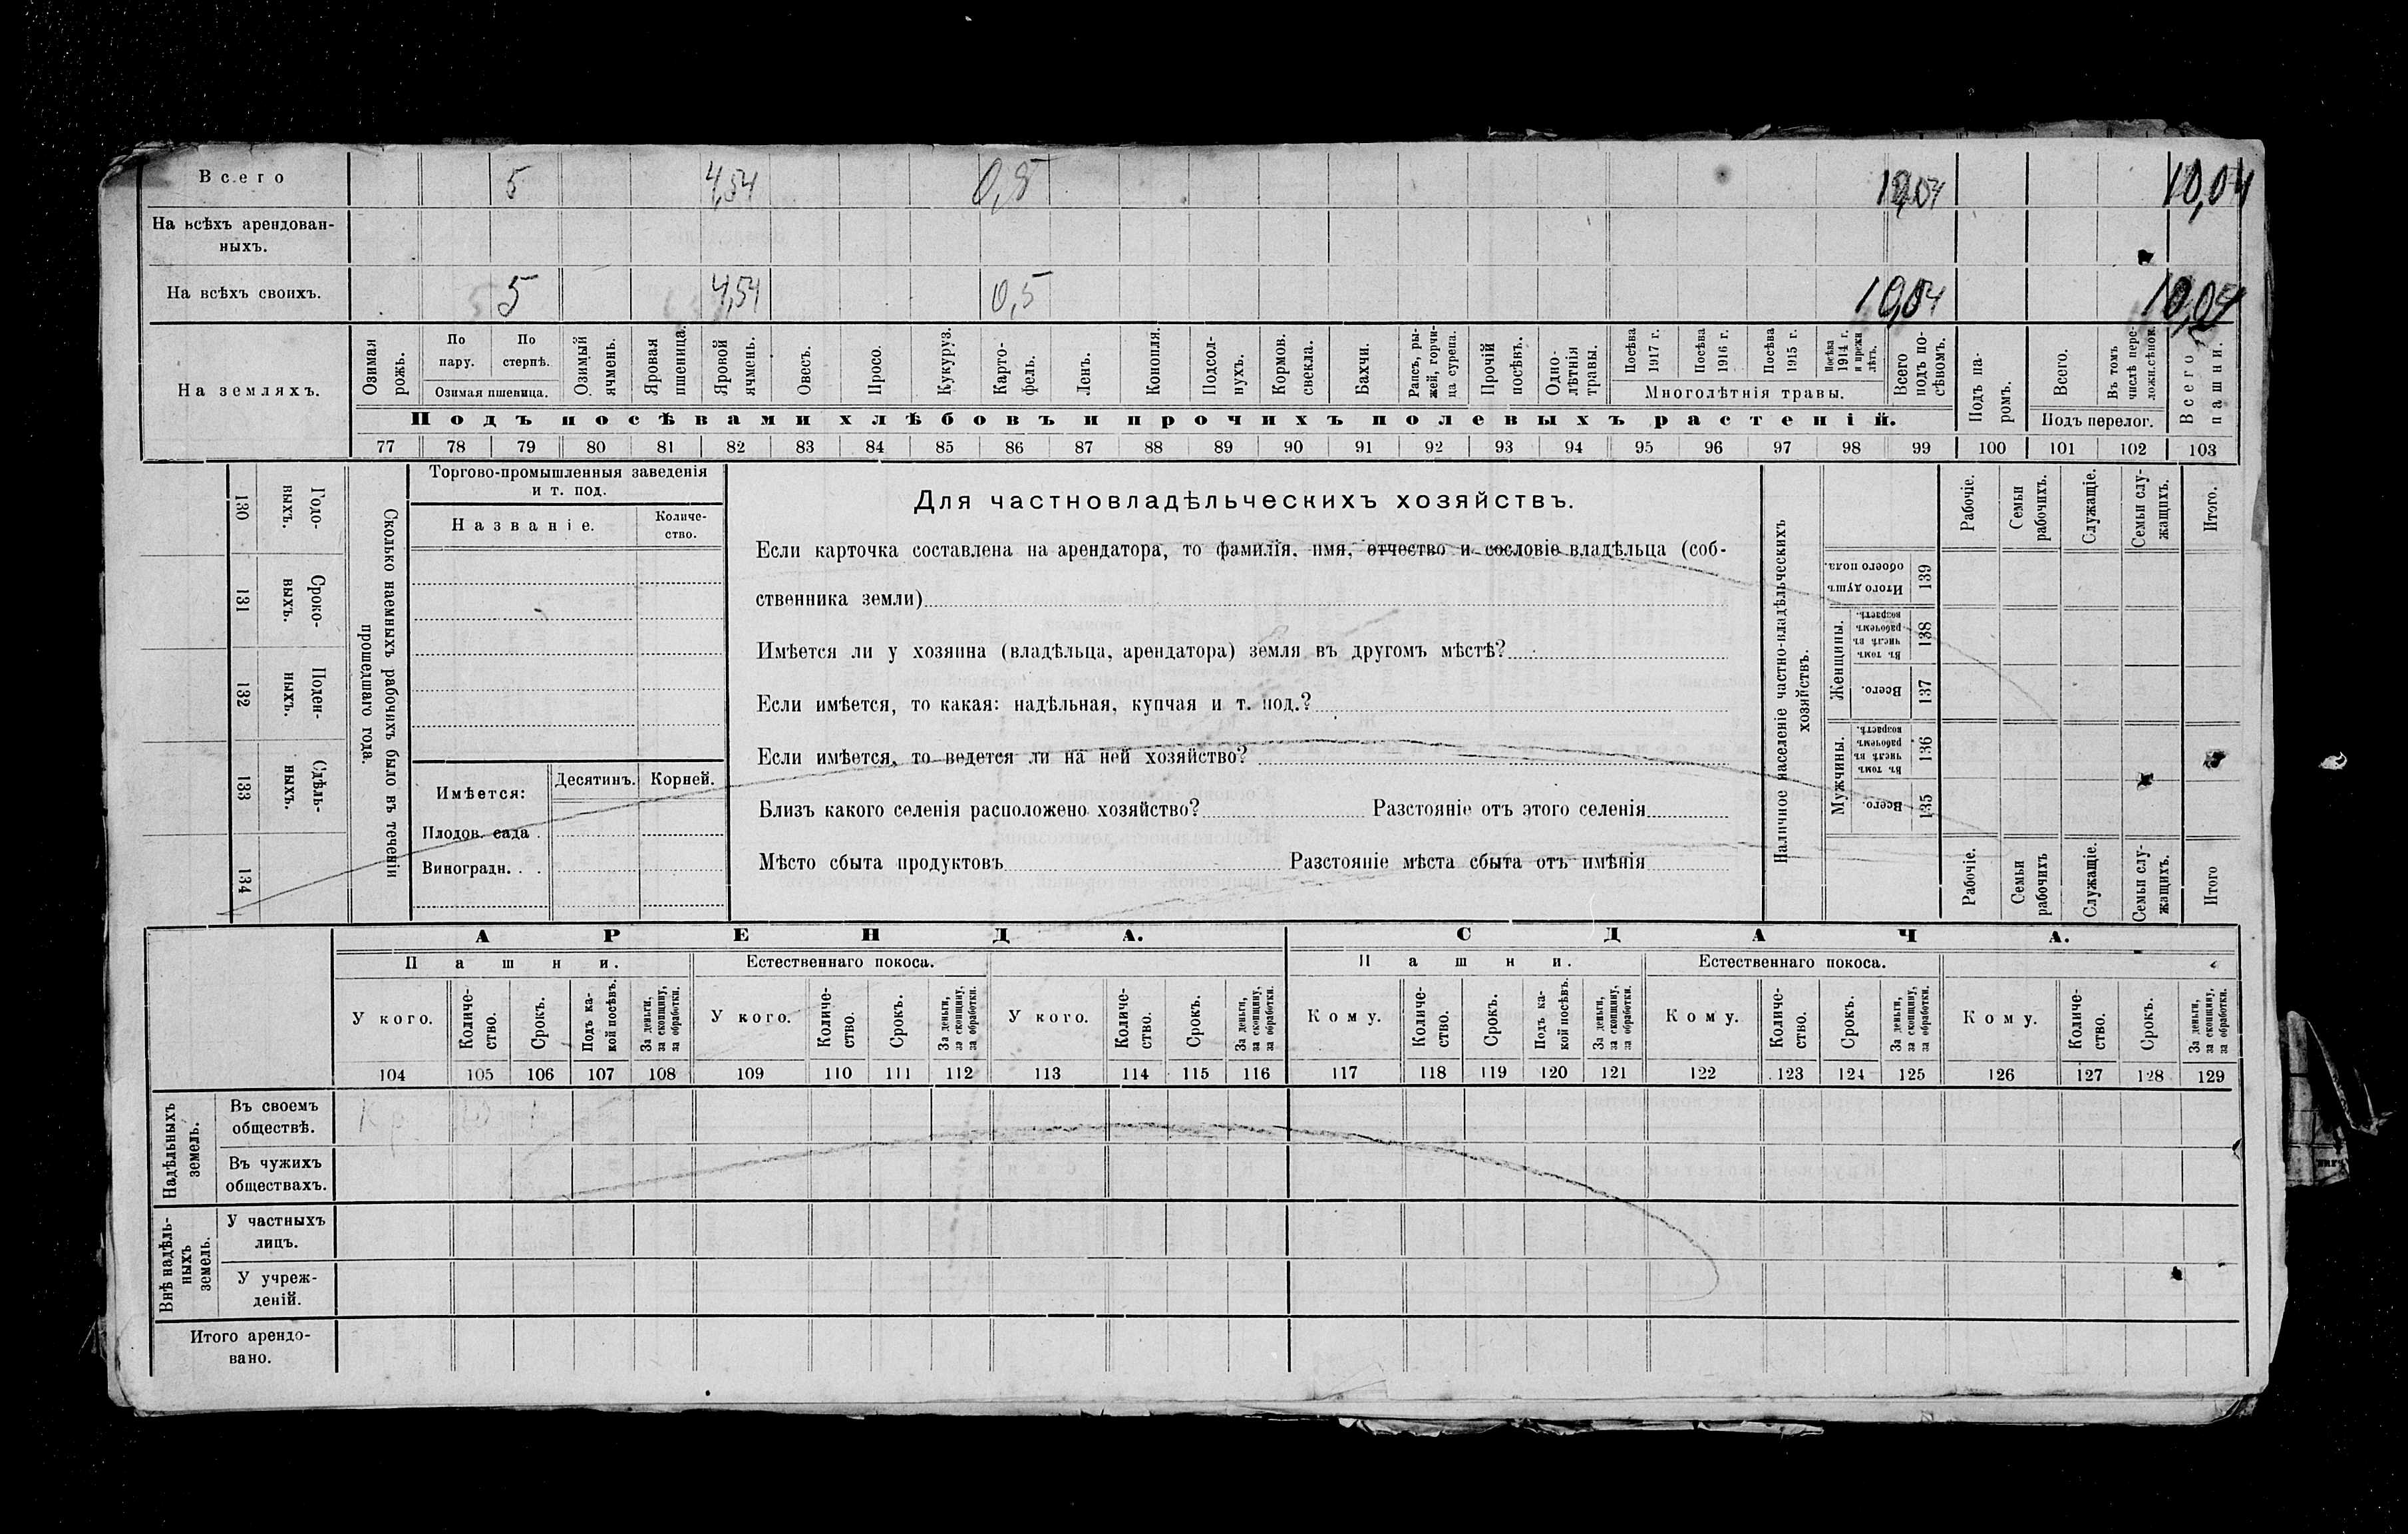 Всего 5 4,54 0,5 10,04 10,04
На всѣхъ арендован-
ныхъ.
На всѣхъ своихъ. 5 4,54 0,5 10,04 10,04
На земляхъ.
Озимая рожь.
По пару.
По стернѣ.
Озимая пшеница.
Озимый ячмень.
Яровая пшеница.
Яровой ячмень.
Овесъ.
Просо.
Кукуруз.
Карто-
фель.
Ленъ.
Конопля.
Подсол-
нухъ.
Кормов. свекла.
Бахчи.
Рапсъ, ры-
жей, горчи-
ца сурепа.
Прочій посѣвъ.
Одно-
лѣтнія
травы.
Посѣва 1917 г.
Посѣва 1916 г.
Посѣва 1915 г.
Посѣва 1914 г. и прежн лѣтъ.
Многолѣтнія травы.
Всего подъ по-
сѣвомъ.
Подъ па-
ромъ.
Всего.
Въ томъ числѣ пере-
ложн.сѣнок.
Подъ перелог.
Всего пашни.
Подъ посѣвами хлѣбовъ и прочихъ полевыхъ растеній.
77 78 79 80 81 82 83 84 85 86 87 88 89 90 91 92 93 94 95 96 97 98 99 100 101 102 103
Сколько наемныхъ рабочихъ было въ теченіи
прошедшаго года.
Годо-
выхъ.
130
Сроко-
выхъ.
131
Поден-
ныхъ.
132
Сдѣль-
ныхъ.
133
134
Торгово-промышленныя заведенія
и т. под.
Названіе.
Количе-
ство.
Имѣется:
Десятинъ.
Корней.
Плодов. сада .
Виноградн. . .
Для частновладѣльческихъ хозяйствъ.
Если карточка составлена на арендатора, то фамилія, имя, отчество и сословіе владѣльца (соб-
ственника земли)
Имѣется ли у хозяина (владѣльца, арендатора) земля въ другомъ мѣстѣ?
Если имѣется, то какая: надѣльная, купчая и т. под.?
Если имѣется, то ведется ли на ней хозяйство?
Близъ какого селенія расположено хозяйство? Разстояніе отъ этого селенія
Мѣсто сбыта продуктовъ Разстояніе мѣста сбыта отъ имѣнія
Наличное населеніе частно-владѣльческихъ
хозяйствъ.
Рабочіе.
Семьи рабочихъ.
Служащіе.
Семьи слу-
жащихъ.
Итого.
Итого душъ обоего пола.
139
Женщины.
Въ томъ числѣ въ рабочемъ возрастѣ.
138
Всего.
137
Мужчины.
Въ томъ числѣ въ рабочемъ возрастѣ.
136
Всего.
135
Рабочіе.
Семьи рабочихъ
Служащіе.
Семьи слу-
жащихъ.
Итого
АРЕНДА. СДАЧА.
Пашни. Естественнаго покоса. Пашни. Естественнаго покоса.
У кого.
Количе-
ство.
Срокъ.
Подъ ка-
кой посѣвъ.
За деньги, за скопщину, за обработки.
У кого.
Количе-
ство.
Срокъ.
За деньги, за скопщину, за обработки.
У кого.
Количе-
ство.
Срокъ.
За деньги, за скопщину, за обработки.
Кому.
Количе-
ство.
Срокъ.
Подъ ка-
кой посѣвъ.
За деньги, за скопщину, за обработки.
Кому.
Количе-
ство.
Срокъ.
За деньги, за скопщину, за обработки.
Кому.
Количе-
ство.
Срокъ.
За деньги, за скопщину, за обработки.
104 105 106 107 108 109 110 111 112 113 114 115 116 117 118 119 120 121 122 123 124 125 126 127 128 129
Надѣльныхъ
земель.
Въ своемъ
обществѣ.
Въ чужихъ
обществахъ.
Внѣ надѣль-
ныхъ
земель.
У частныхъ
лицъ.
У учреж-
деній.
Итого арендо-
вано.